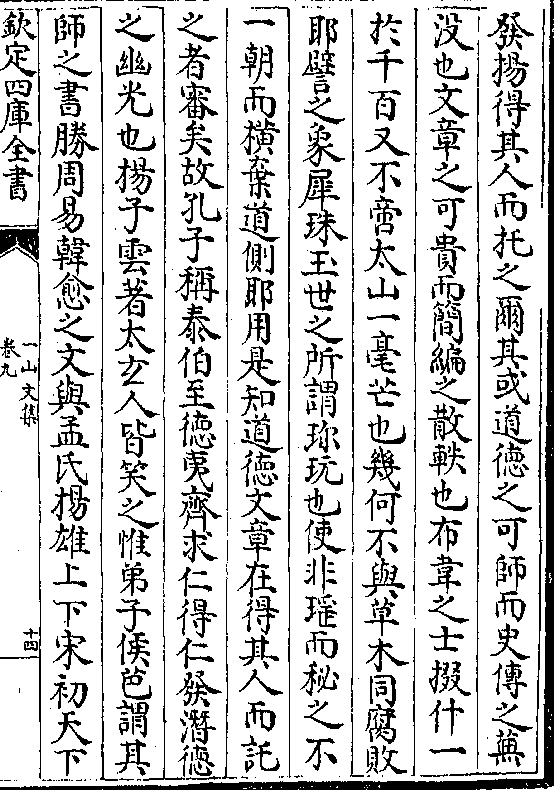 發揚得其人而托之爾其或道德之可師而史傳之蕪
没也文章之可貴而簡編之散軼也布韋之士掇什一
於千百又不啻太山一毫芒也幾何不與草木同腐敗
耶譬之象犀珠玉世之所謂珎玩也使非瑶而秘之不
一朝而横棄道側耶用是知道徳文章在得其人而託
之者審矣故孔子稱泰伯至徳夷齊求仁得仁發潛德
之幽光也揚子雲著太玄人皆笑之惟弟子侯芭謂其
師之書勝周易韓愈之文與孟氏揚雄上下宋初天下
欽定四庫全書
一山文集
卷九
十四